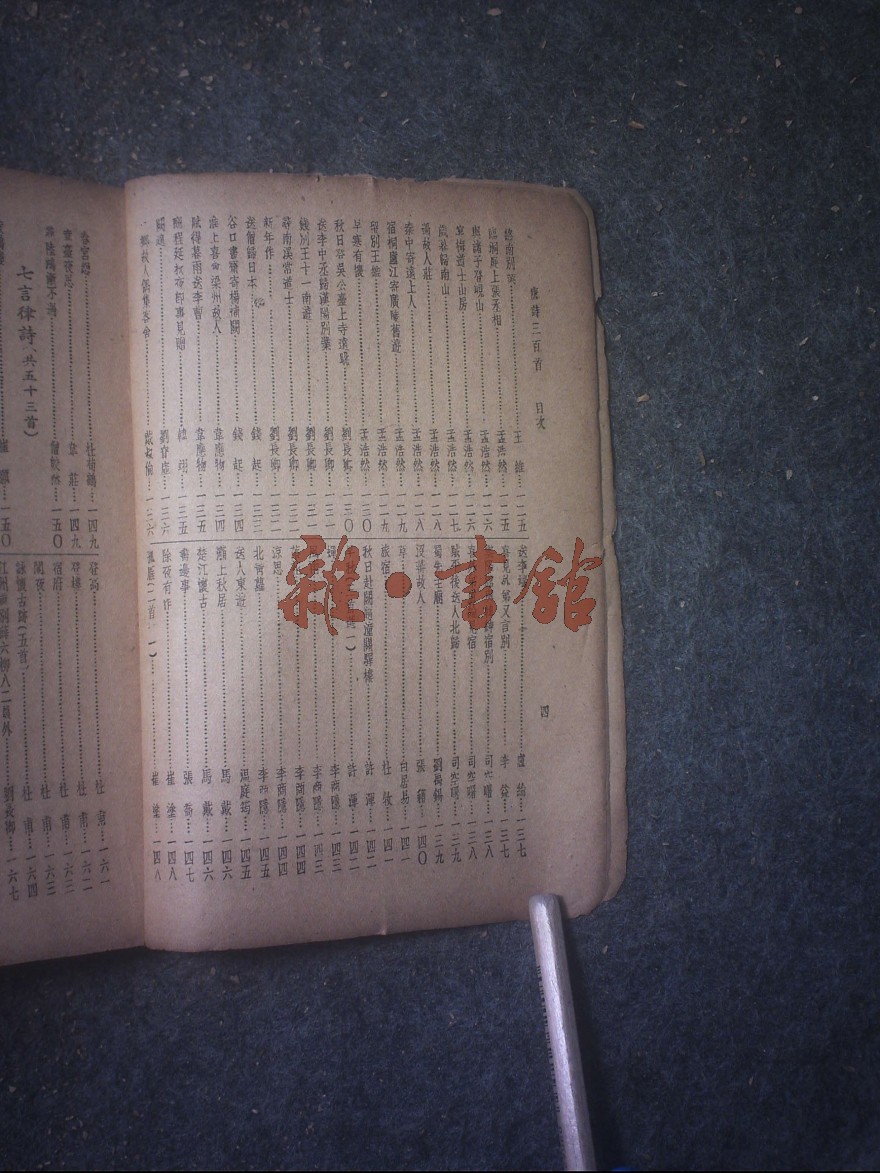 唐詩三百首 目次
四
終南別業……王維…一二五
臨洞庭上張丞相……孟浩然…一二五
與諸子登峴山……孟浩然…一二六
道士山房……孟浩然…一二六
歲暮歸南山……孟浩然…一二七
過故人莊……孟浩然…一二八
秦中寄遠上人……孟浩然…一二八
宿桐廬江寄廣陵舊遊……孟浩然…一二九
留別王維……孟浩然…一二九
早寒有懷……孟浩然…一三〇
秋日登吳公臺上寺遠眺……劉長卿…一三〇
送李中丞歸漢陽別業……劉長卿…一三一
餞別王十一南遊……劉長卿…一三一
尋南溪常道士……劉長卿…一三二
新年作……劉長卿…一三二
送僧歸日本……錢起…一三三
谷口書齋寄楊補闕……錢起…一三四
淮上喜會梁州故人……韋應物…一三四
賦得暮雨送李曹……韋應物…一三五
酬程延秋夜即事見贈……韓翃…一三五
闕題……劉眘虛…一三六
鄉故人偶集客舍……戴叔倫…一三六
送李端……盧綸…一三七
喜見外弟又言別……李益…一三七
宿別……司空曙…一三八
宿……司空曙…一三八
賊平後送人北歸……司空曙…一三九
蜀先主廟……劉禹錫…一三九
沒蕃故人……張籍…一四〇
草……白居易…一四一
旅宿……杜牧…一四一
秋日赴闕題潼關驛樓……許渾…一四二
許渾…一四二
李商隱…一四三
李商隱…一四三
李商隱…一四四
涼思……李商隱…一四四
北青蘿……李商隱…一四五
送人東遊……溫庭筠…一四五
灞上秋居……馬戴…一四六
楚江懷古……馬戴…一四六
書邊事……張喬…一四七
除夜有作……崔塗…一四八
孤雁(二首 一)……崔塗…一四八
春宮怨……杜荀鶴…一四九
章臺夜思……韋莊…一四九
尋陸鴻漸不遇……僧皎然…一五〇
七言律詩(共五十三首)
崔顥…一五〇
登高……杜甫…一六一
登樓……杜甫…一六二
宿府……杜甫…一六三
閣夜……杜甫…一六四
詠懷古跡(五首)……杜甫…一六四
江州重別薛六柳八二員外……劉長卿…一六七
雜·書館